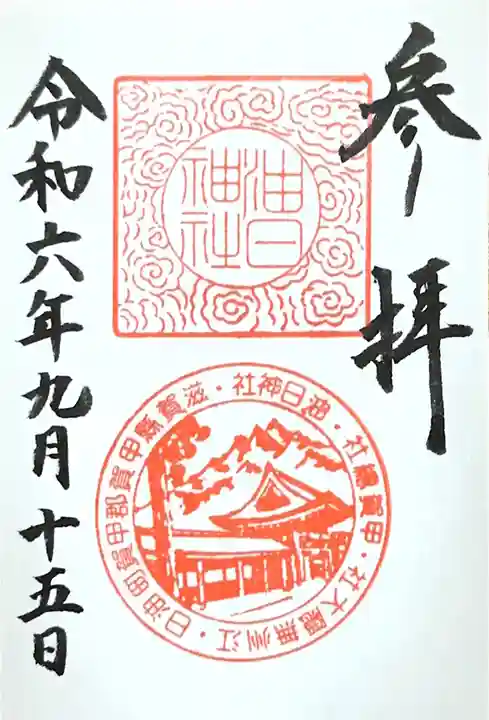 参拝
油日
神社
油日神社・滋賀縣甲賀郡甲賀町油日・江州無隠大社・甲賀總社・
令和六年九月十五日